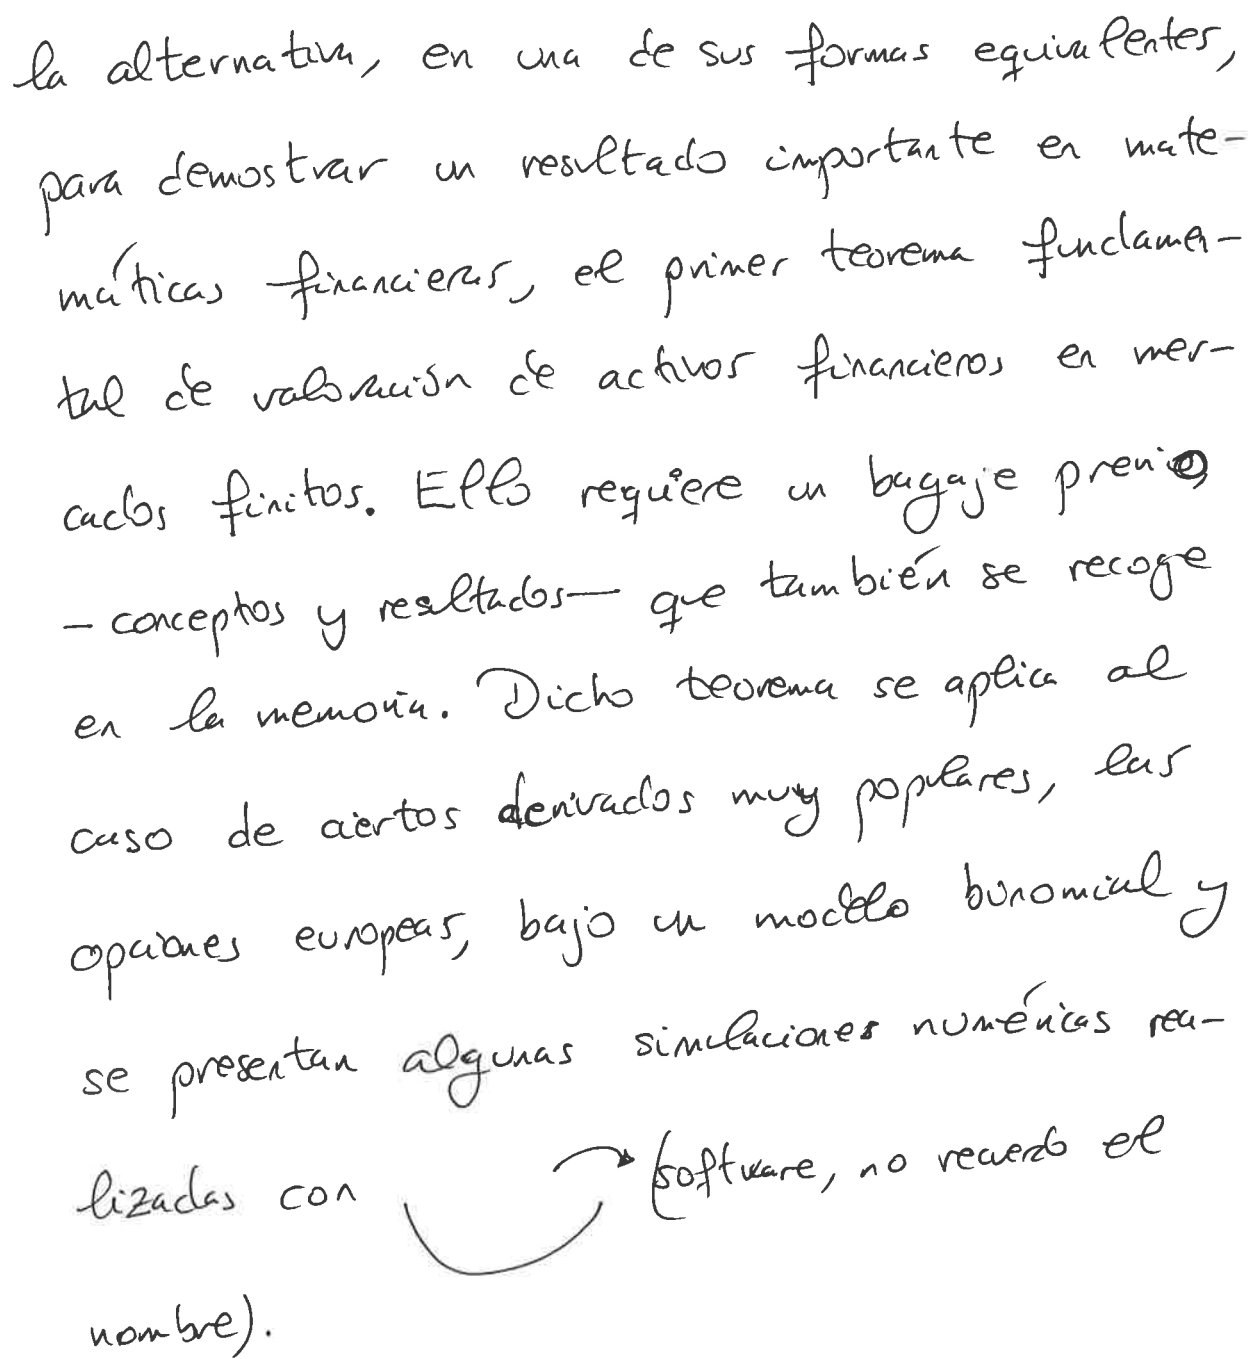 la alternativa, en una de sus formas equivalentes,
para demostrar un resultado importante en mate-
máticas financieras, el primer teorema fundamen-
tal de valoración de activos financieros en mer-
cados finitos. Ello requiere un bagaje previo
- conceptos y resultados - que también se recoge
en la memoria. Dicho teorema se aplica al
caso de ciertos derivados muy populares, las
opciones europeas, bajo un modelo binomial y
se presentan algunas simulaciones numéricas rea-
lizadas con (software, no recuerdo el
nombre).